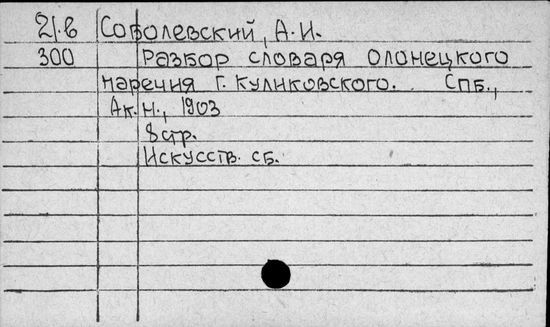 21.в Соболевский, А.И.
300 Разбор словаря Олонецкого
наречия Г. Куликовского. Спб.,
Ак.н., 1903
8 стр.
Искусств. сб.